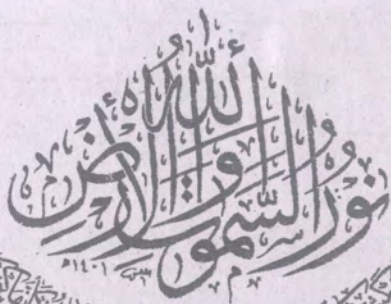 الله نور السموات والارض
سنة ١٤٠١هـ